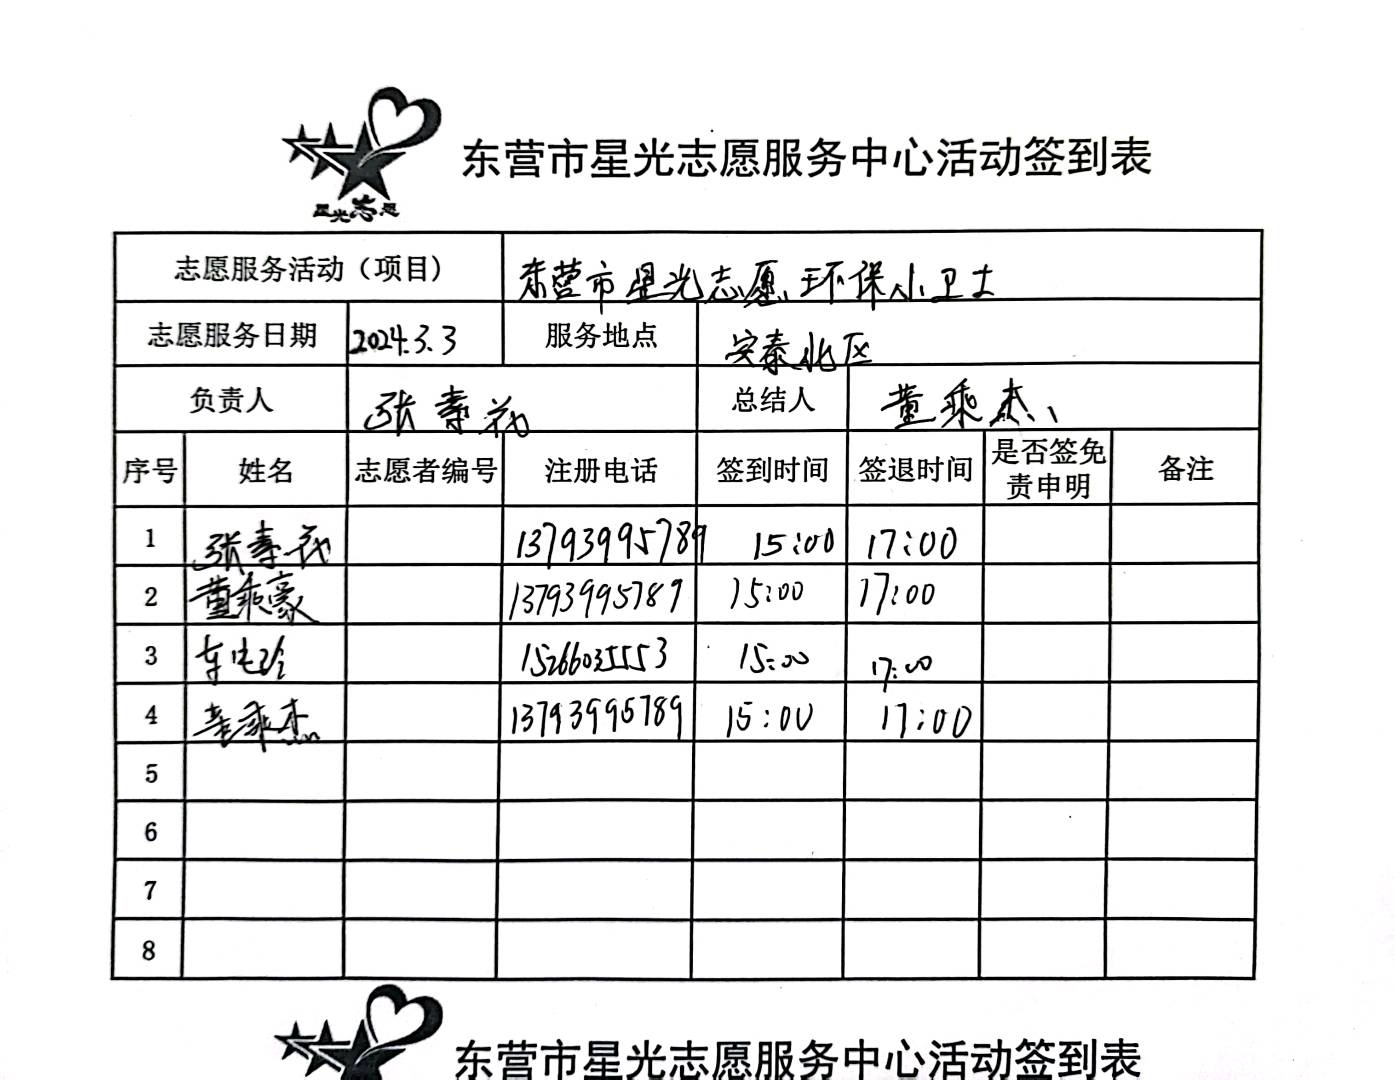 星光志愿
东营市星光志愿服务中心活动签到表
志愿服务活动（项目） 东营市星光志愿 环保小卫士
志愿服务日期 2024.3.3 服务地点 安泰北区
负责人 张寿花 总结人 董乘杰
序号 姓名 志愿者编号 注册电话 签到时间 签退时间 是否签免责申明 备注
1 张寿花 13793995789 15:00 17:00
2 董乘豪 13793995789 15:00 17:00
3 15266035553 15:00 17:00
4 董乘杰 13793995789 15:00 17:00
5
6
7
8
东营市星光志愿服务中心活动签到表